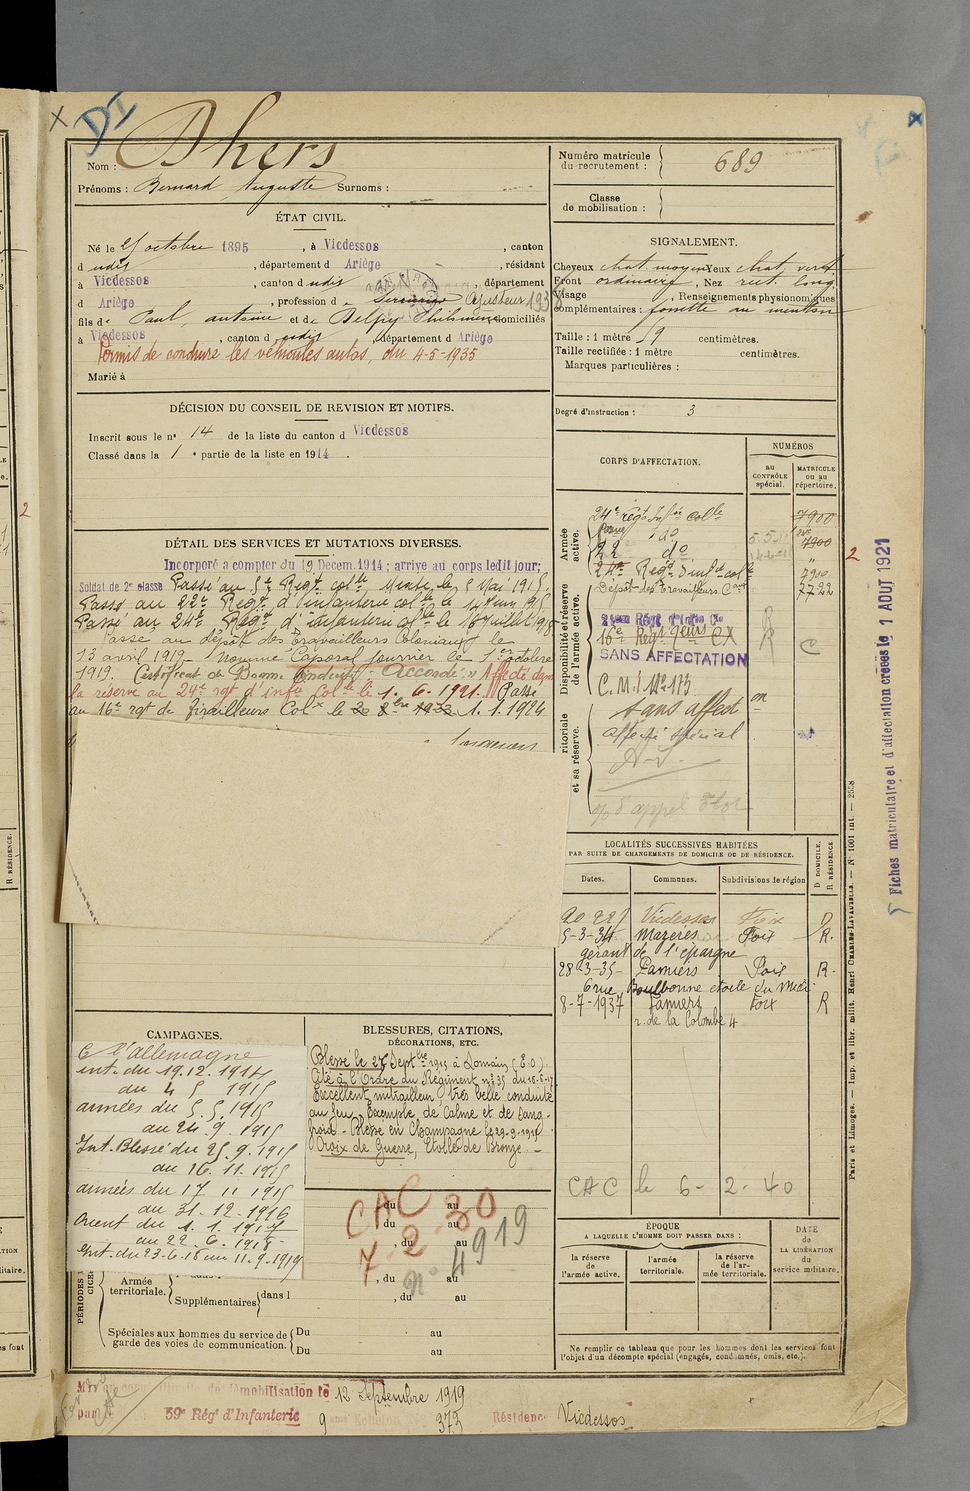 DI
Nom : Dhers
Prénoms : Bernard Auguste Surnoms :
Numéro matricule du recrutement : 689
Classe de mobilisation :
ÉTAT CIVIL.
Né le 25 octobre 1895, à Vicdessos, canton
d udis, département d Ariège, résidant
à Vicdessos, canton d udis, département
d Ariège, profession d Ajusteur
fils de Paul, antoine et de Delpy Philomène domiciliés
à Vicdessos, canton d udis, département d Ariège
Permis de conduire les véhicules autos, du 4-5-1935
Marié à
SIGNALEMENT.
Cheveux chat. moyen Yeux chat. vert
Front ordinaire, Nez rect. long
Visage, Renseignements physionomiques
complémentaires : fossette au menton
Taille : 1 mètre 59 centimètres.
Taille rectifiée : 1 mètre centimètres.
Marques particulières :
Degré d'instruction : 3
DÉCISION DU CONSEIL DE REVISION ET MOTIFS.
Inscrit sous le n° 14 de la liste du canton d Vicdessos
Classé dans la 1° partie de la liste en 1914.
DÉTAIL DES SERVICES ET MUTATIONS DIVERSES.
Incorporé à compter du 19 Décem. 1914 ; arrivé au corps ledit jour;
Soldat de 2e classe Passé au 5e Régt colle Mixte le 5 Mai 1915.
Passé au 22e Régt d'infanterie colle le 14 Juin 1915
Passé au 24e Régt d'infanterie colle le 16 Juillet 1918
Passé au dépôt des Travailleurs Coloniaux le
13 avril 1919. Nommé Caporal fourrier le 1er octobre
1919. Certificat de Bonne Conduite "Accordé." Affecté dans
la réserve au 24e rgt d'infie Colle le 1. 6. 1921. Passé
au 16e rgt de Tirailleurs Colx le 1. 1. 1924
CORPS D'AFFECTATION.
NUMÉROS
au CONTRÔLE spécial.
MATRICULE ou au répertoire.
Armée active.
24e régt Infie colle 7900
22 do
24e Régt d'infie colle
Dépôt des Travailleurs Caux 7722
Disponibilité et réserve de l'armée active.
16e Régt
SANS AFFECTATION
C
C.M.I. N° 173
ritoriale et sa réserve.
Sans affection
Affecté spécial
LOCALITÉS SUCCESSIVES HABITÉES
PAR SUITE DE CHANGEMENTS DE DOMICILE OU DE RÉSIDENCE.
Dates. Communes. Subdivisions de région
D DOMICILE.
R RÉSIDENCE
Vicdessos Foix D
5-3-34 Mazères Foix R.
gérant de l'épargne
28-3-35 Pamiers Foix R.
6 rue Boulbonne étoile du Midi
8-7-1937 Pamiers Foix R
r. de la Colombe 4
CAC le 6-2-40
CAMPAGNES.
C l'allemagne
int. du 19.12.1914
au 4 5 1915
armées du 5.5.1915
au 24.9.1915
Int. Blessé du 25.9.1915
au 16.11.1915
armées du 17 11 1915
au 31.12.1916
Orient du 1.1.1917
au 22.6.1918
Int. du 23.6.18 au 11.9.1919
BLESSURES, CITATIONS,
DÉCORATIONS, ETC.
Blessé le 27 Septbre 1915 à Somain
Cité à l'Ordre du Régiment n° 35
Excellent mitrailleur, très belle conduite
au feu, Exemple de Calme et de Sang-
froid. Blessé en Champagne
Croix de Guerre, Etoile de Bronze.
CAC
7-2-30
n° 4919
du au
, du au
, du au
, du au
, du au
PÉRIODES
Armée territoriale.
Supplémentaires dans l
Spéciales aux hommes du service de garde des voies de communication.
Du au
Du au
ÉPOQUE
A LAQUELLE L'HOMME DOIT PASSER DANS :
la réserve de l'armée active.
l'armée territoriale.
la réserve de l'armée territoriale.
DATE de LA LIBÉRATION du service militaire.
Ne remplir ce tableau que pour les hommes dont les services font
l'objet d'un décompte spécial (engagés, condamnés, omis, etc.).
démobilisation le 12 Septembre 1919
par 59e Régt d'Infanterie 9 Echelon 373 Résidence Vicdessos
Fiches matriculaire et d'affectation créées le 1 AOUT 1921
Paris et Limoges. — Imp. et libr. milit. Henri CHARLES-LAVAUZELLE. — N° 1001 int. — 2538